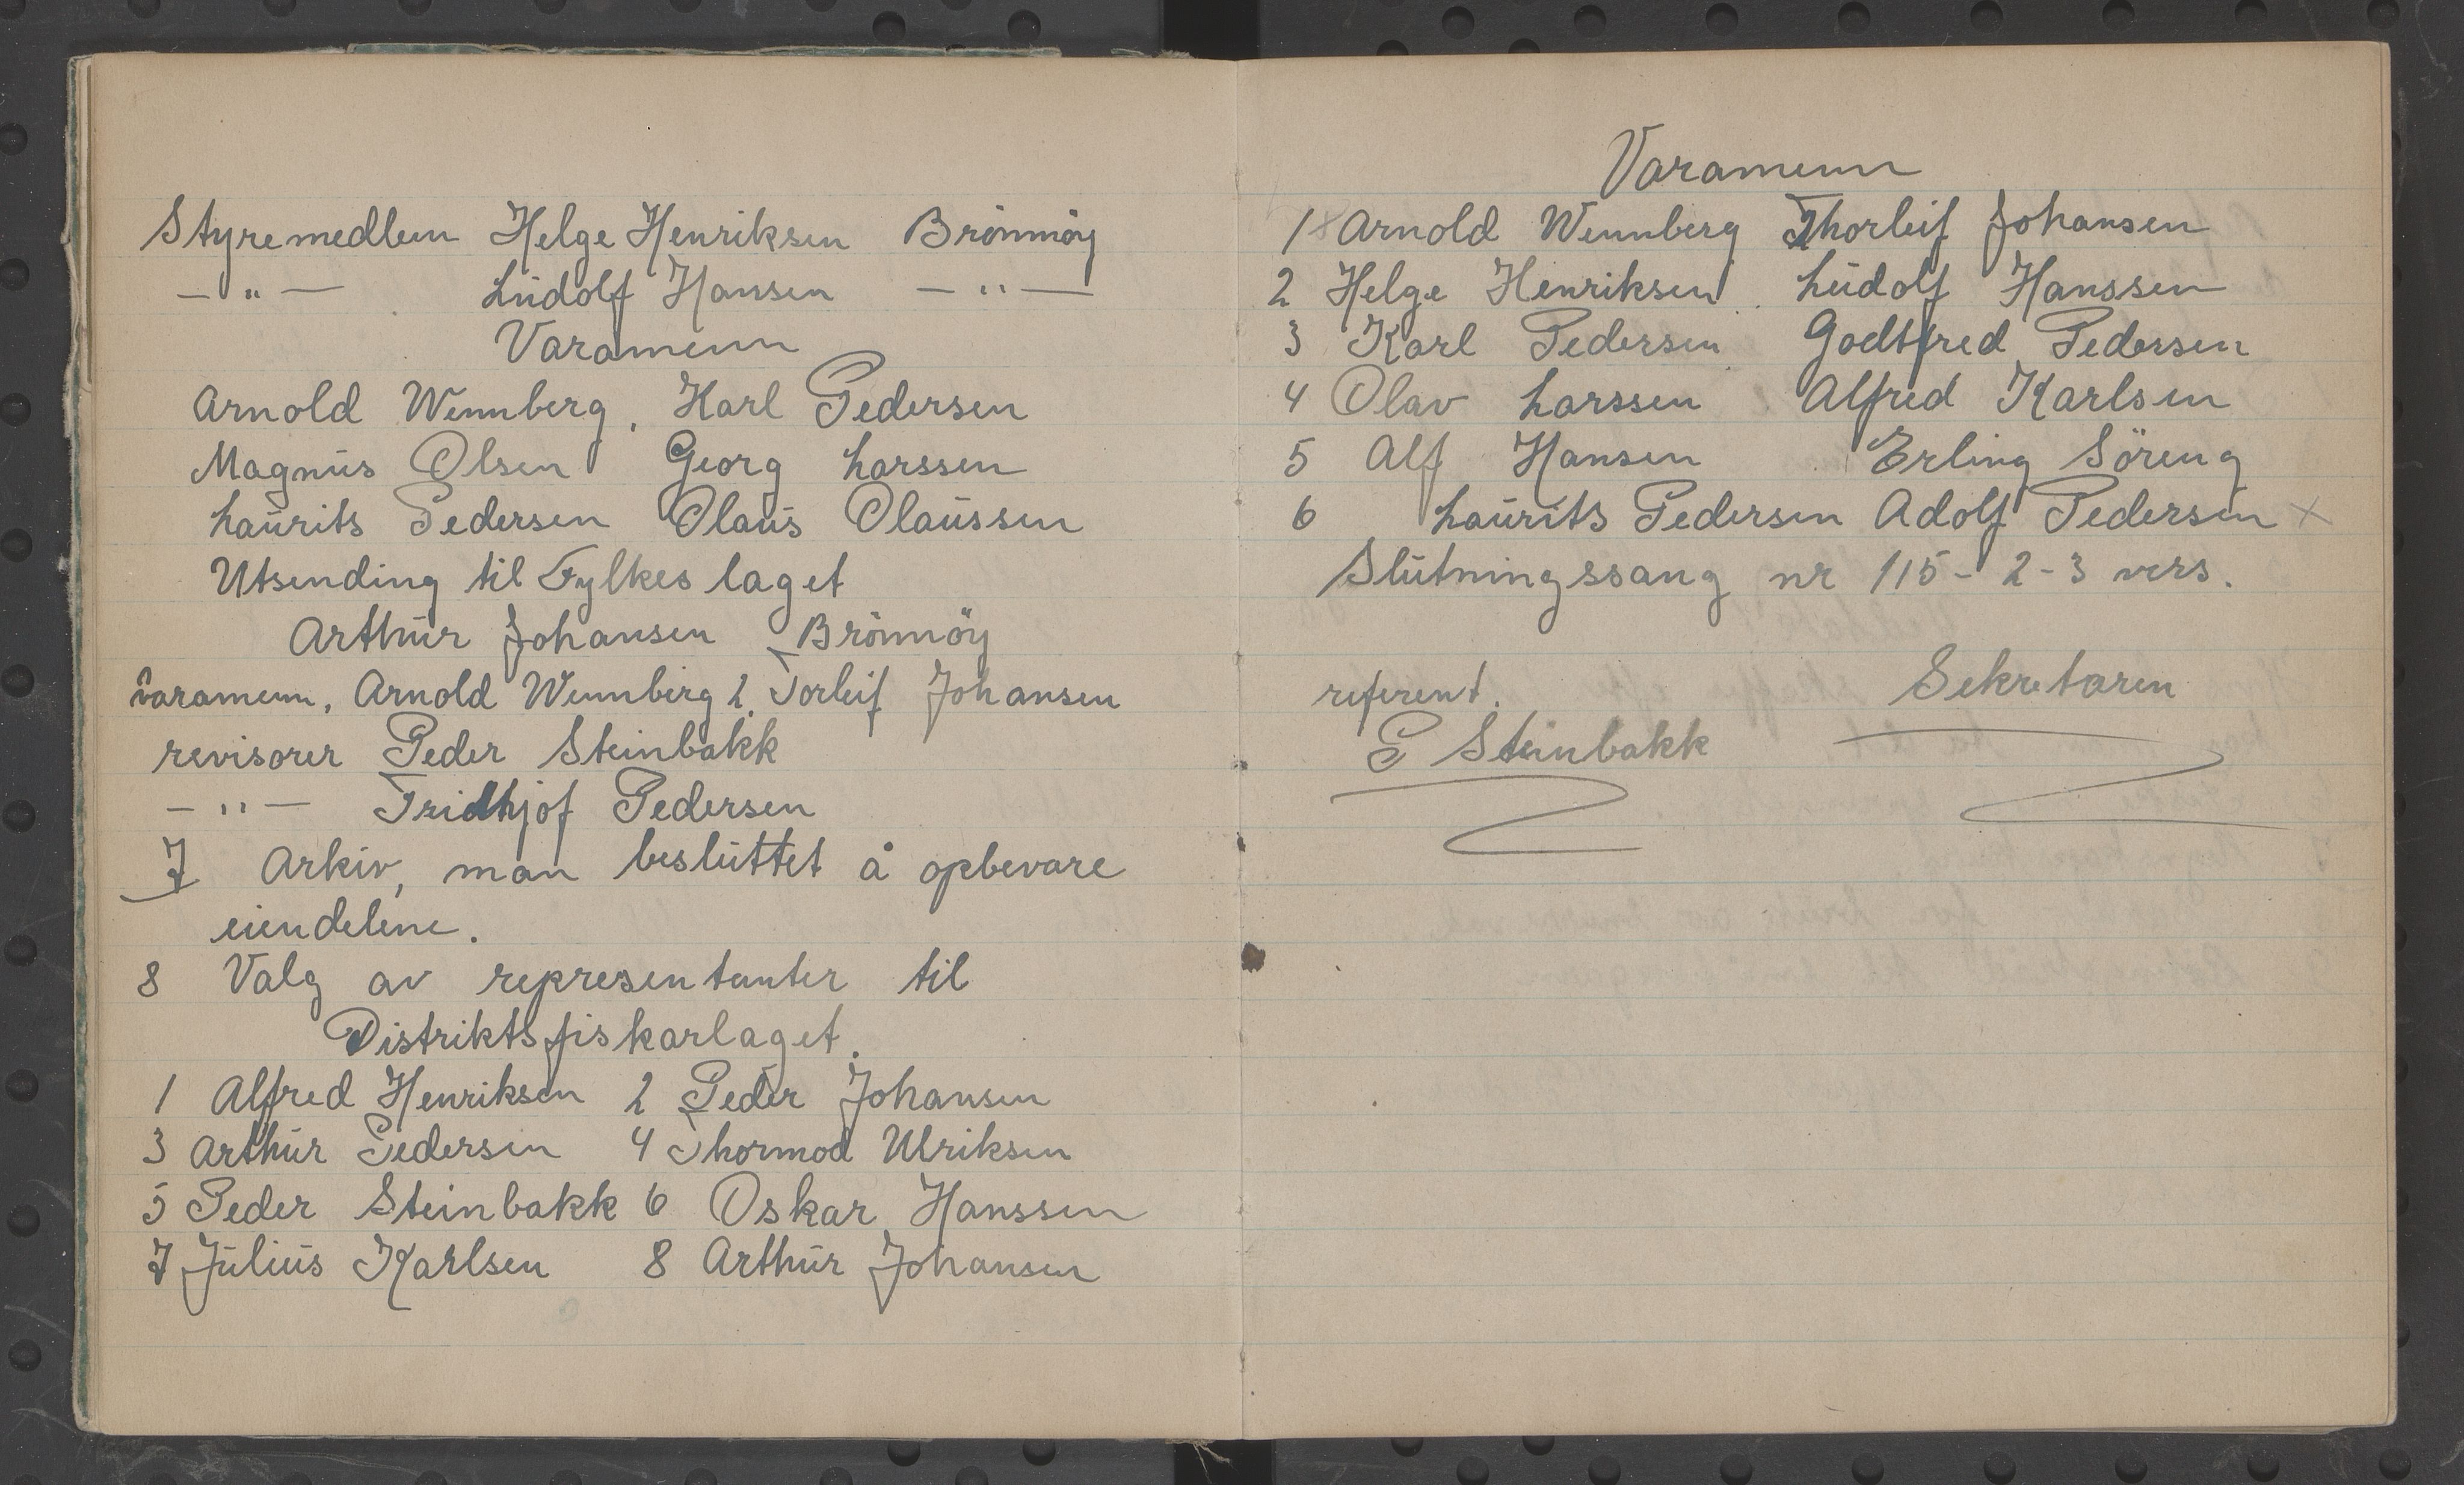 Styremedlem Helge Henriksen Brönnöy
— " — Ludolf Hansen — " —
Varamenn
Arnold Wennberg, Karl Pedersen
Magnus Olsen Georg Larssen
Laurits Pedersen Olaus Olaussen
Utsending til Fylkeslaget
Arthur Johansen Brönnöy
varamenn, Arnold Wennberg 2. Torleif Johansen
revisorer Peder Steinbakk
— " — Fridthjof Pedersen
7 Arkiv, man besluttet å opbevare
eiendelene.
8 Valg av representanter til
Distriktsfiskarlaget.
1 Alfred Henriksen 2 Peder Johansen
3 Arthur Pedersen 4 Thormod Ulriksen
5 Peder Steinbakk 6 Oskar Hanssen
7 Julius Karlsen 8 Arthur Johansen
Varamenn
1 Arnold Wennberg Thorleif Johansen
2 Helge Henriksen Ludolf Hanssen
3 Karl Pedersen Godtfred Pedersen
4 Olav Larssen Alfred Karlsen
5 Alf Hansen Erling Söreng
6 Laurits Pedersen Adolf Pedersen x
Slutningssang nr 115 - 2-3 vers.
referent. Sekretaren
P Steinbakk